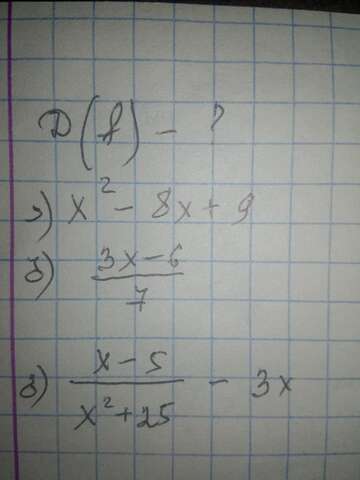 D(f) - ?
а) x² - 8x + 9
б) (3x - 6)/7
в) (x - 5)/(x² + 25) - 3x